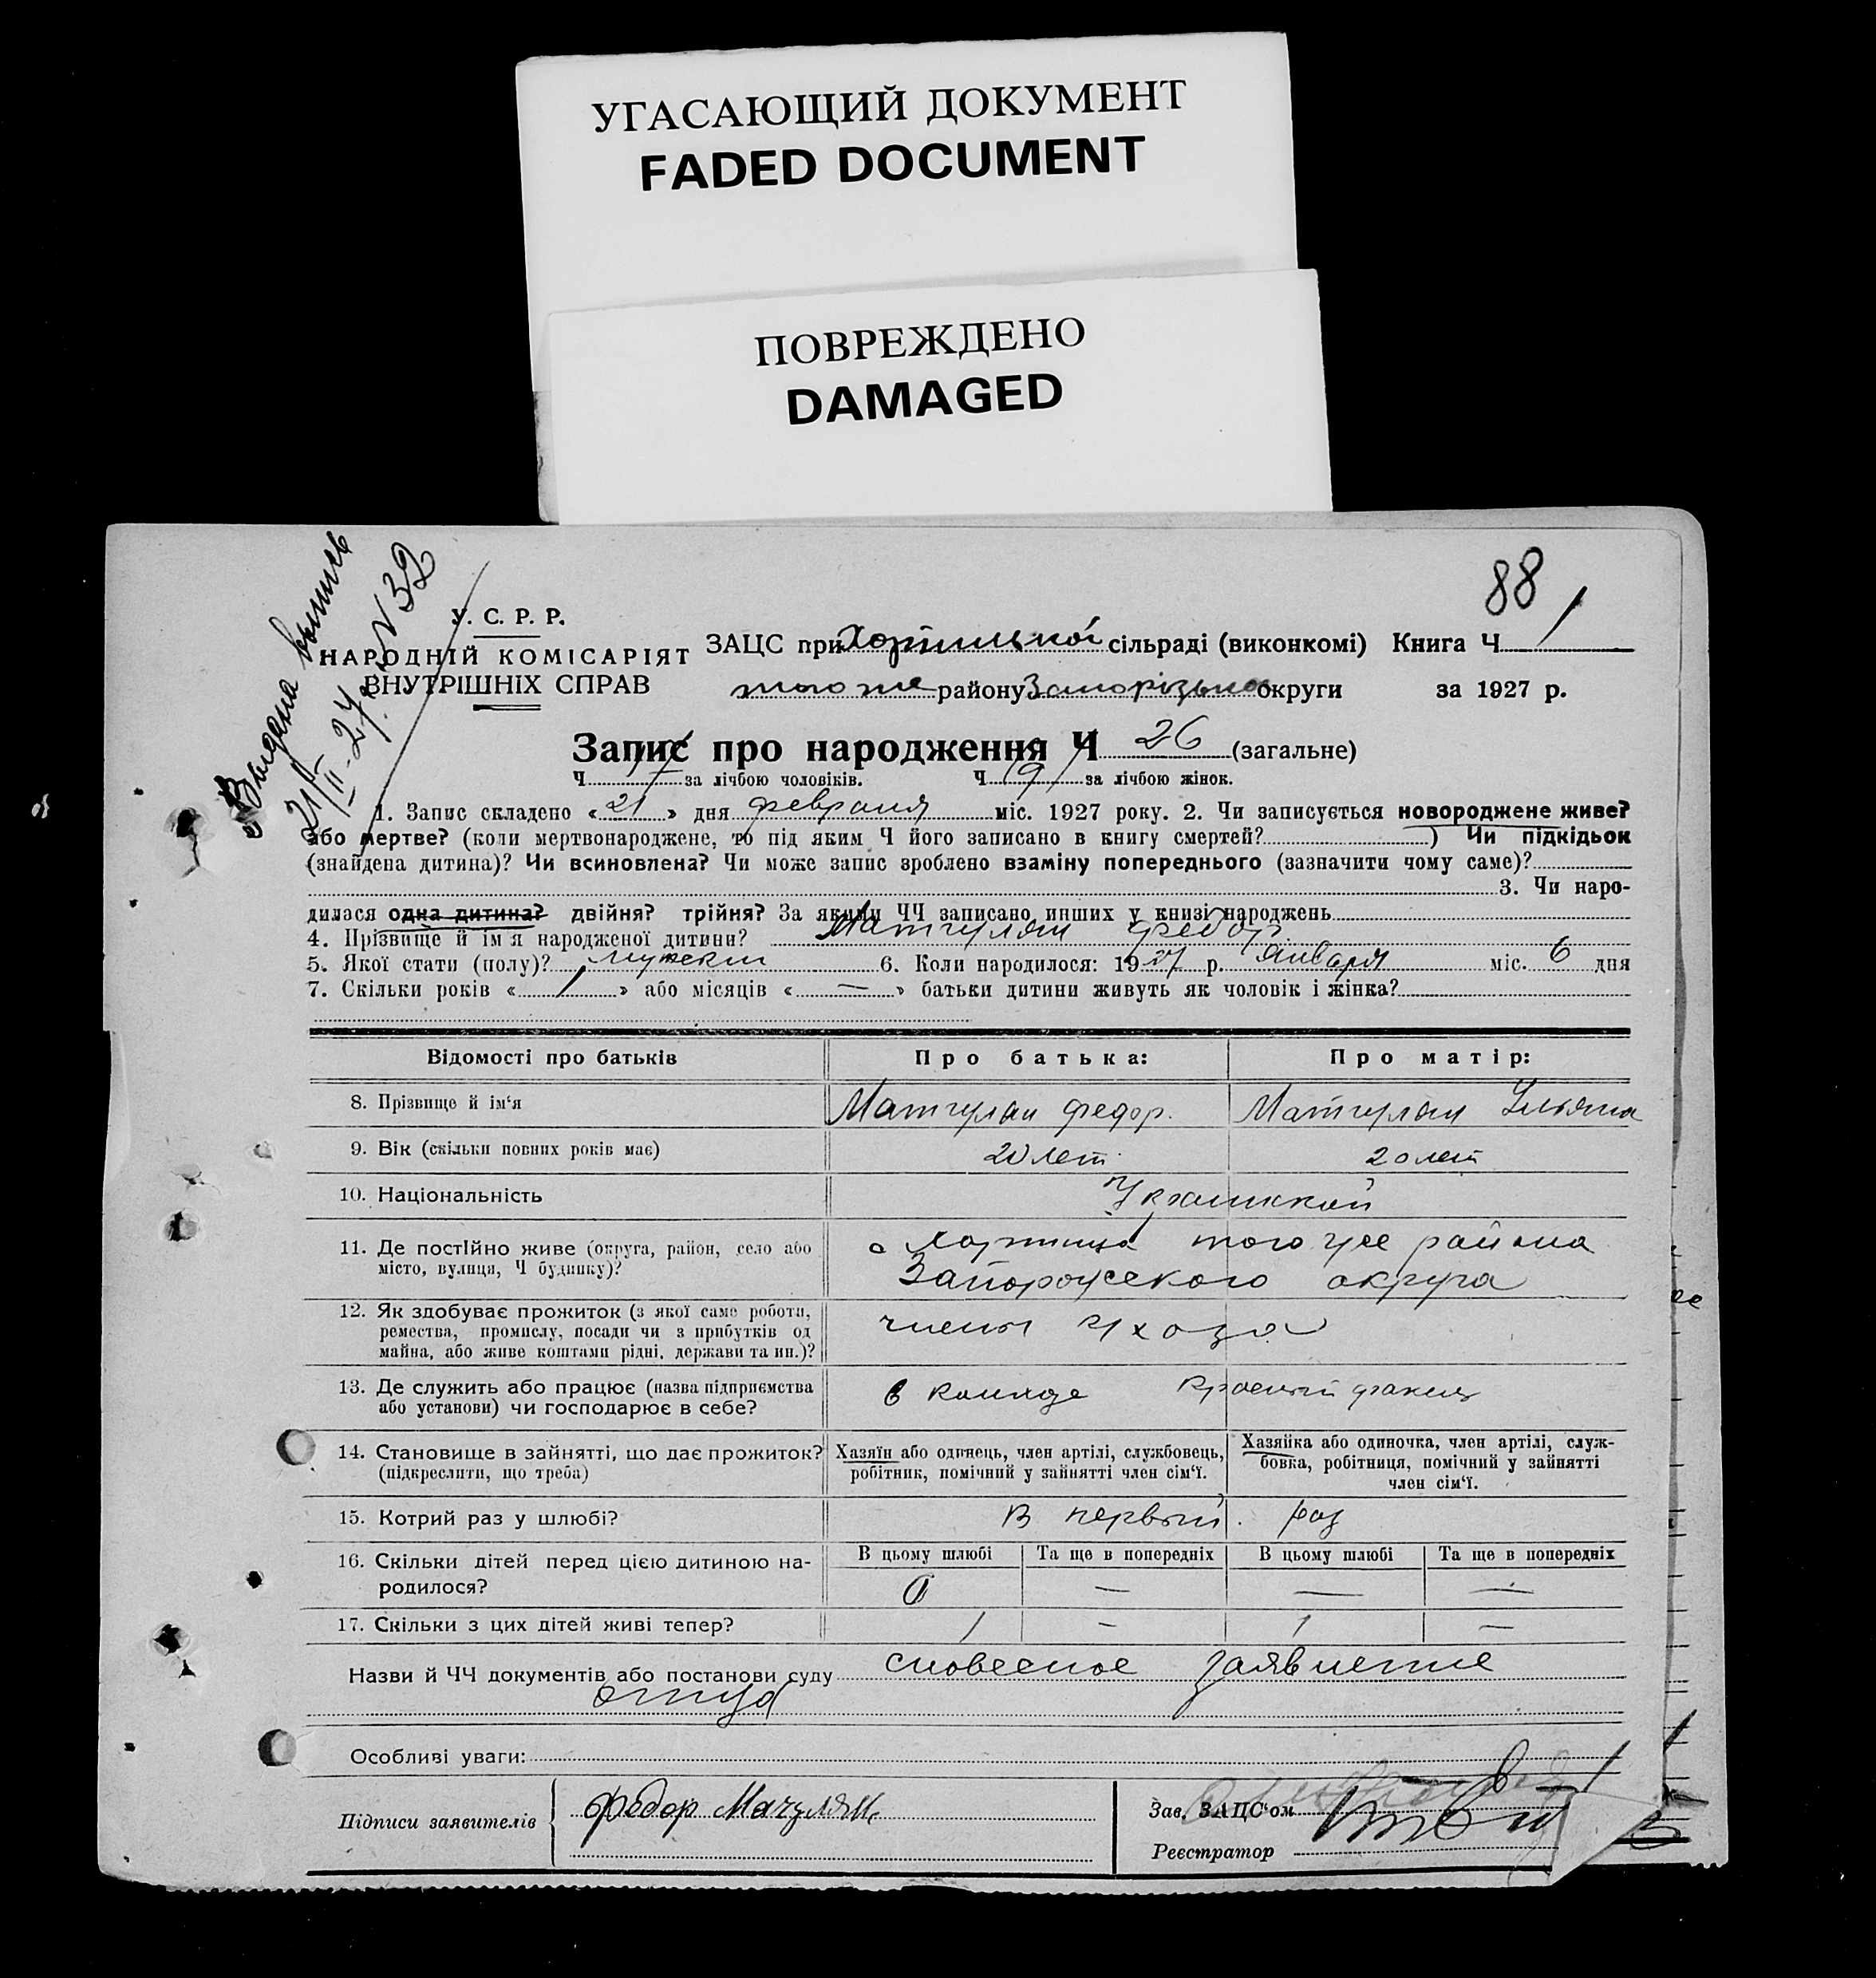 УГАСАЮЩИЙ ДОКУМЕНТ
FADED DOCUMENT
ПОВРЕЖДЕНО
DAMAGED
88
Выдана выпись
21/II-27 г. N 32
У. С. Р. Р.
НАРОДНІЙ КОМІСАРІЯТ
ВНУТРІШНІХ СПРАВ
ЗАЦС при Хортицької сільраді (виконкомі) Книга Ч 1
того же району Запорізької округи за 1927 р.
Запис про народження Ч 26 (загальне)
Ч 17 за лічбою чоловіків. Ч 9 за лічбою жінок.
1. Запис складено « 21 » дня февраля міс. 1927 року. 2. Чи записується новороджене живе?
або мертве? (коли мертвонароджене, то під яким Ч його записано в книгу смертей? ) Чи підкідьок
(знайдена дитина)? Чи всиновлена? Чи може запис зроблено взаміну попереднього (зазначити чому саме)?
3. Чи наро-
дилася одна дитина? двійня? трійня? За якими ЧЧ записано инших у книзі народжень
4. Прізвище й ім'я народженої дитини? Федор
5. Якої стати (полу)? мужской 6. Коли народилося: 1927 р. Января міс. 6 дня
7. Скільки років « 1 » або місяців « — » батьки дитини живуть як чоловік і жінка?
Відомості про батьків Про батька: Про матір:
8. Прізвище й ім'я Федор. Ульяна
9. Вік (скільки повних років має) 20 лет 20 лет
10. Національність
11. Де постІйно живе (округа, район, село або
місто, вулиця, Ч будинку)?
Хортица того же района
Запорожского округа
12. Як здобуває прожиток (з якої саме роботи,
ремества, промислу, посади чи з прибутків од
майна, або живе коштами рідні, держави та ин.)?
члены
13. Де служить або працює (назва підприємства
або установи) чи господарює в себе?
в
14. Становище в зайнятті, що дає прожиток?
(підкреслити, що треба)
Хазяїн або одинець, член артілі, службовець,
робітник, помічний у зайнятті член сім'ї.
Хазяйка або одиночка, член артілі, служ-
бовка, робітниця, помічний у зайнятті
член сім'ї.
15. Котрий раз у шлюбі? В первый раз
16. Скільки дітей перед цією дитиною на-
родилося?
В цьому шлюбі Та ще в попередніх В цьому шлюбі Та ще в попередніх
0 — — —
17. Скільки з цих дітей живі тепер? 1 — 1 —
Назви й ЧЧ документів або постанови суду словесное заявление
отца
Особливі уваги:
Підписи заявителів Федор Мачулян
Зав. ЗАЦС'ом
Реєстратор